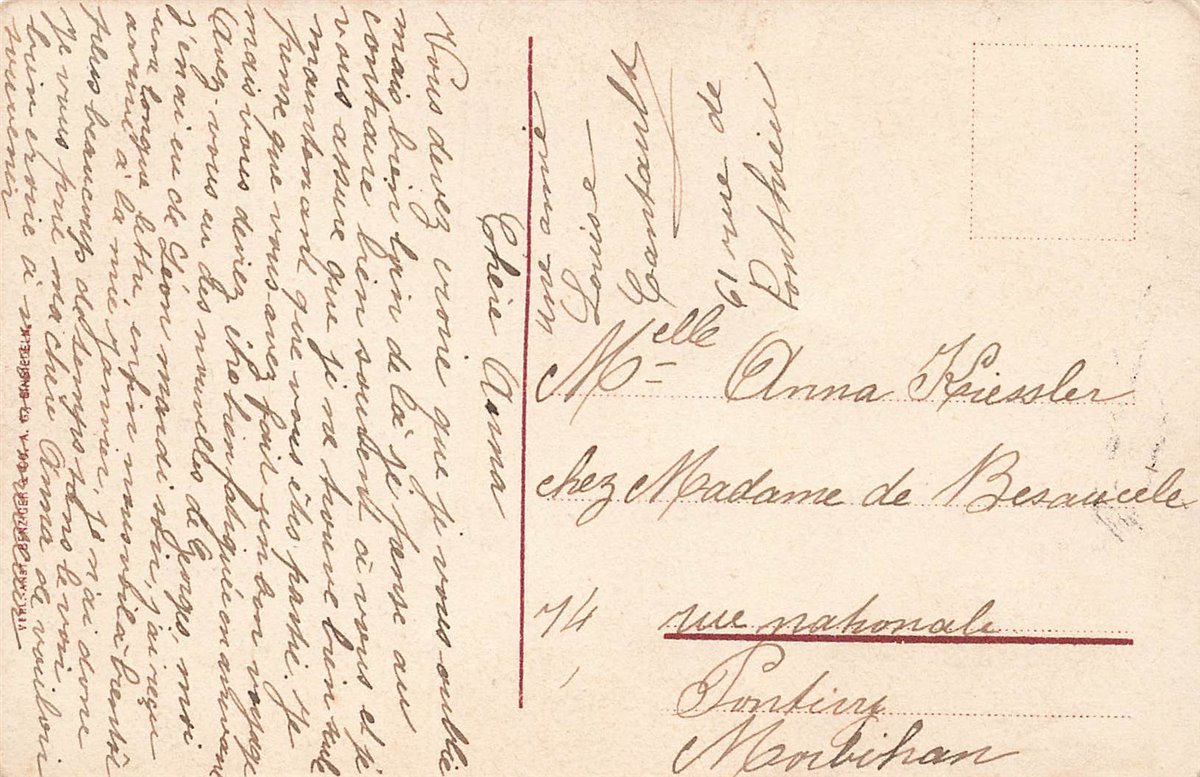 Chère Anna
Vous devez croire que je vous oublie
mais bien loin de là je pense au
contraire bien souvent à vous et je
vous assure que je me trouve bien seule
maintenant que vous êtes partie. Je
pense que vous avez fait un bon voyage
mais vous deviez être bien fatiguée en arrivant
Avez-vous eu des nouvelles de Georges, moi
j'en ai eu de Léon mardi soir, j'ai reçu
une longue lettre, enfin nous voilà bientôt
arrivé à la mie janvier, je n'ai donc
plus beaucoup de temps sans le voir
je vous prie ma chère Anna de vouloir
bien croire à
souvenir
Louise
61 rue de
Ponthieu
Melle Anna Kiessler
chez Madame de Besaucele
74 rue nationale
Pontivy
Morbihan